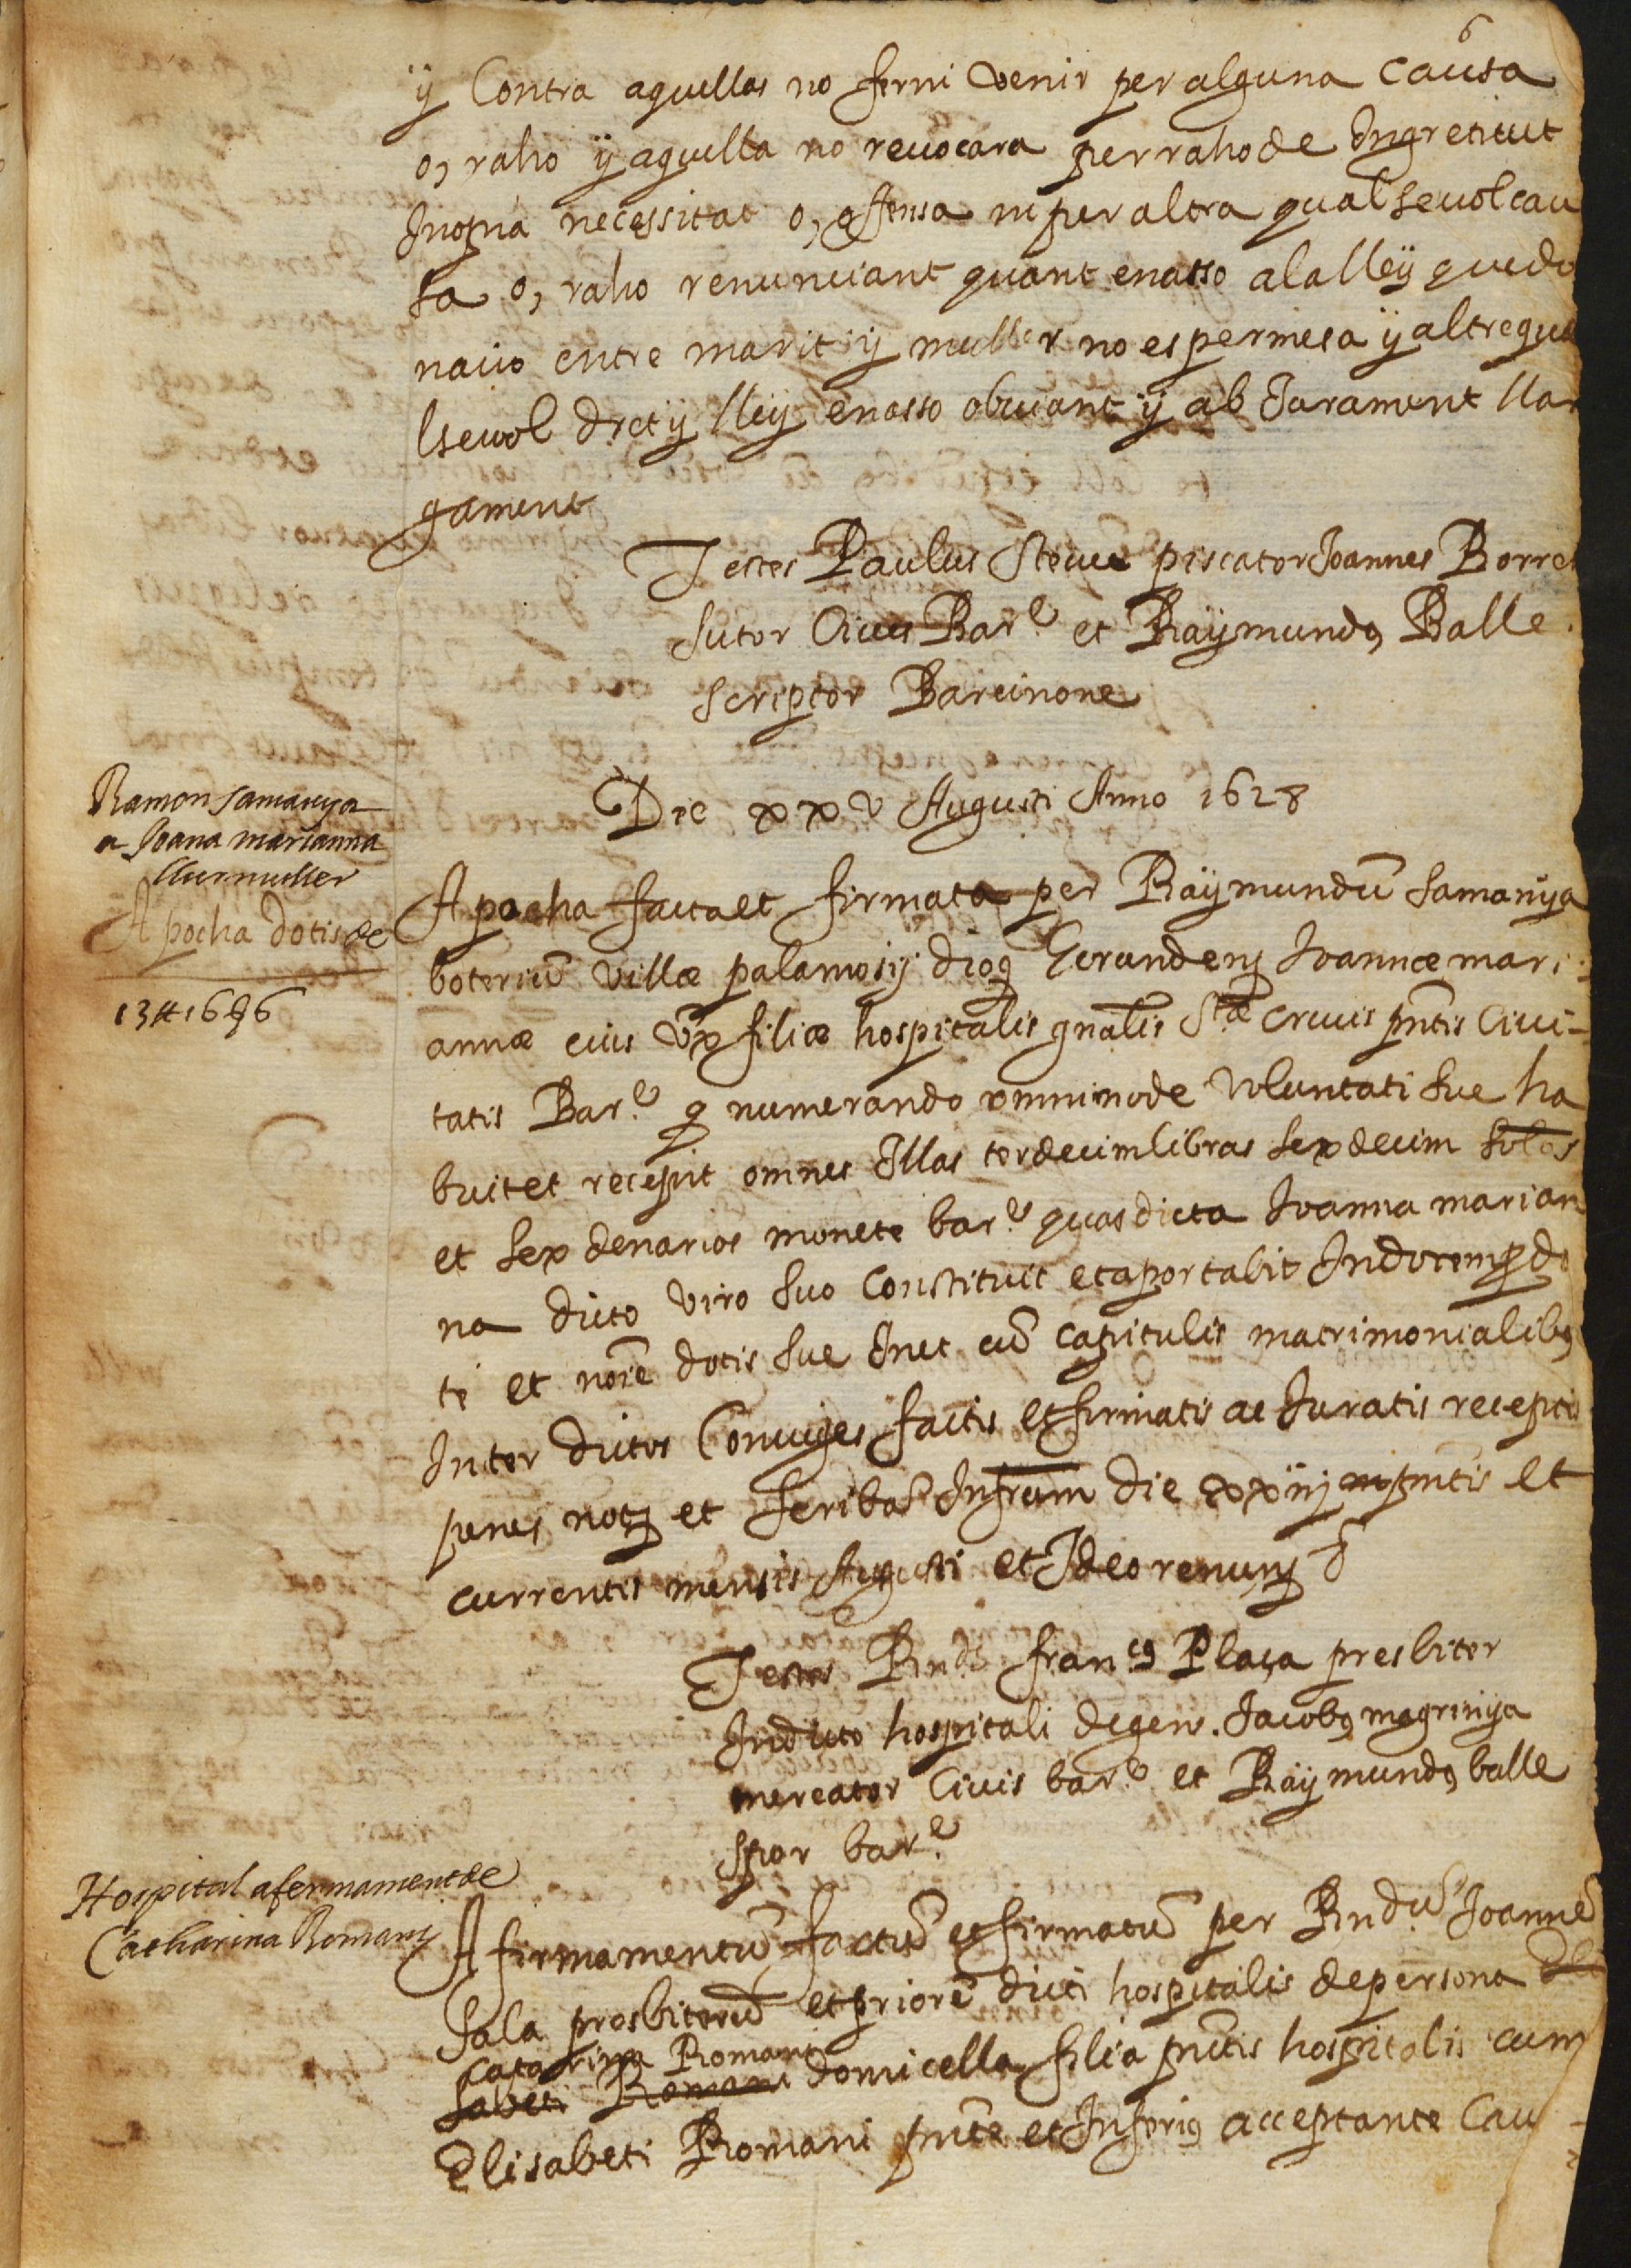 6
ÿ Contra aquellas no ferni venir per alguna causa
o, raho ÿ aquella no revocara per raho de Ingretitut
Inopia necessitat o, offensa ni per altra qualsevol cau
sa o, raho renunciant quant enasso a la lleÿ que do
nacio entre marit ÿ muller no es permesa ÿ altre qua
lsevol dret ÿ lleÿ enasso obviant ÿ ab Jurament llar
gament
Testes Paulus Steve piscator Joannes Borrel
sutor Cives Bar.e et Raÿmundus Balle
scriptor Barcinone
Ramon Samanya
a Joana marianna
llur muller
Apocha dotis de
13 ₶ 16 s 6
Die xxv Augusti Anno 1628
Apocha facta et firmata per Raÿmundū Samanÿa
boteriū villæ palamosij dioc Gerunden Joannæ mari
annæ eius ux filiæ hospitalis gnalis Stæ crucis pntis Civi-
tatis Bar.e q numerando omnimode voluntati sue ha
buit et recepit omnes Illas terdecim libras sexdecim solos
et sex denarios monete bar.e quas dicta Joanna marian
na dicto viro suo constituit et aportabit In dotem p do
te et noīe dotis sue Inet cū capitulis matrimonialibus
Inter dictos Conuges factis et firmatis ac Juratis receptis
penes not et scribā Infrum die xxiij pntis et
currentis mensis Augusti et Ideo renun d
Testes Rnds franc9 Plaça presbiter
In dicto hospitali degens. Jacobus magrinya
mercator Civis bar.e et Raÿmundus balle
spor bar.e
Hospital afermament de
Catharina Romani
Afirmamentū factū et firmatū per Rndū Joannē
Sala presbiterū et priorē dicti hospitalis de persona
Catarina Romani
Sabeti Romani domicella filia pntis hospitalis cum
Elisabeti Romani pnte et Inferius acceptante Cau